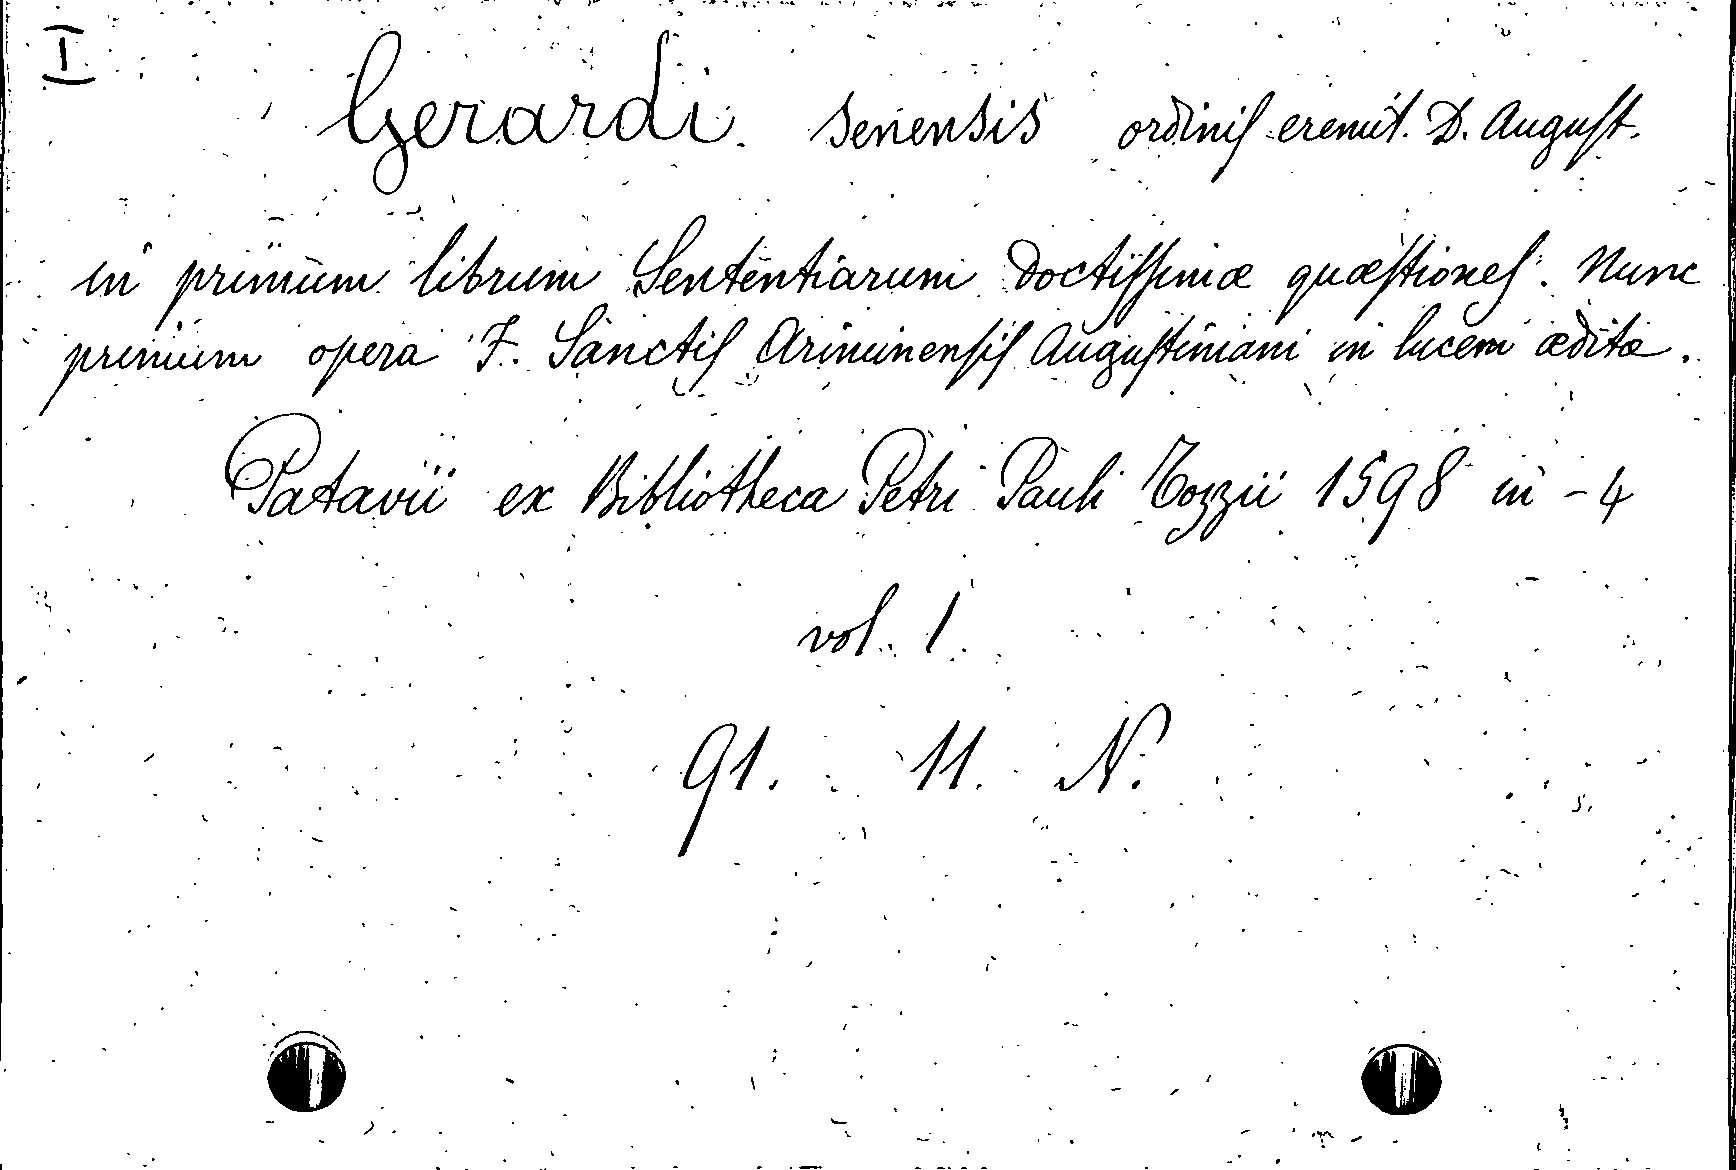 I
Gerardi senensis ordinis eremit. D. August.
in primum librum Sententiarum doctissimæ quæstiones. Nunc
primum opera F. Sanctis Ariminensis Augustiniani in lucem ædita.
Patavii ex Bibliotheca Petri Pauli Tozzii 1598 in - 4
vol. 1.
91. 11. N.